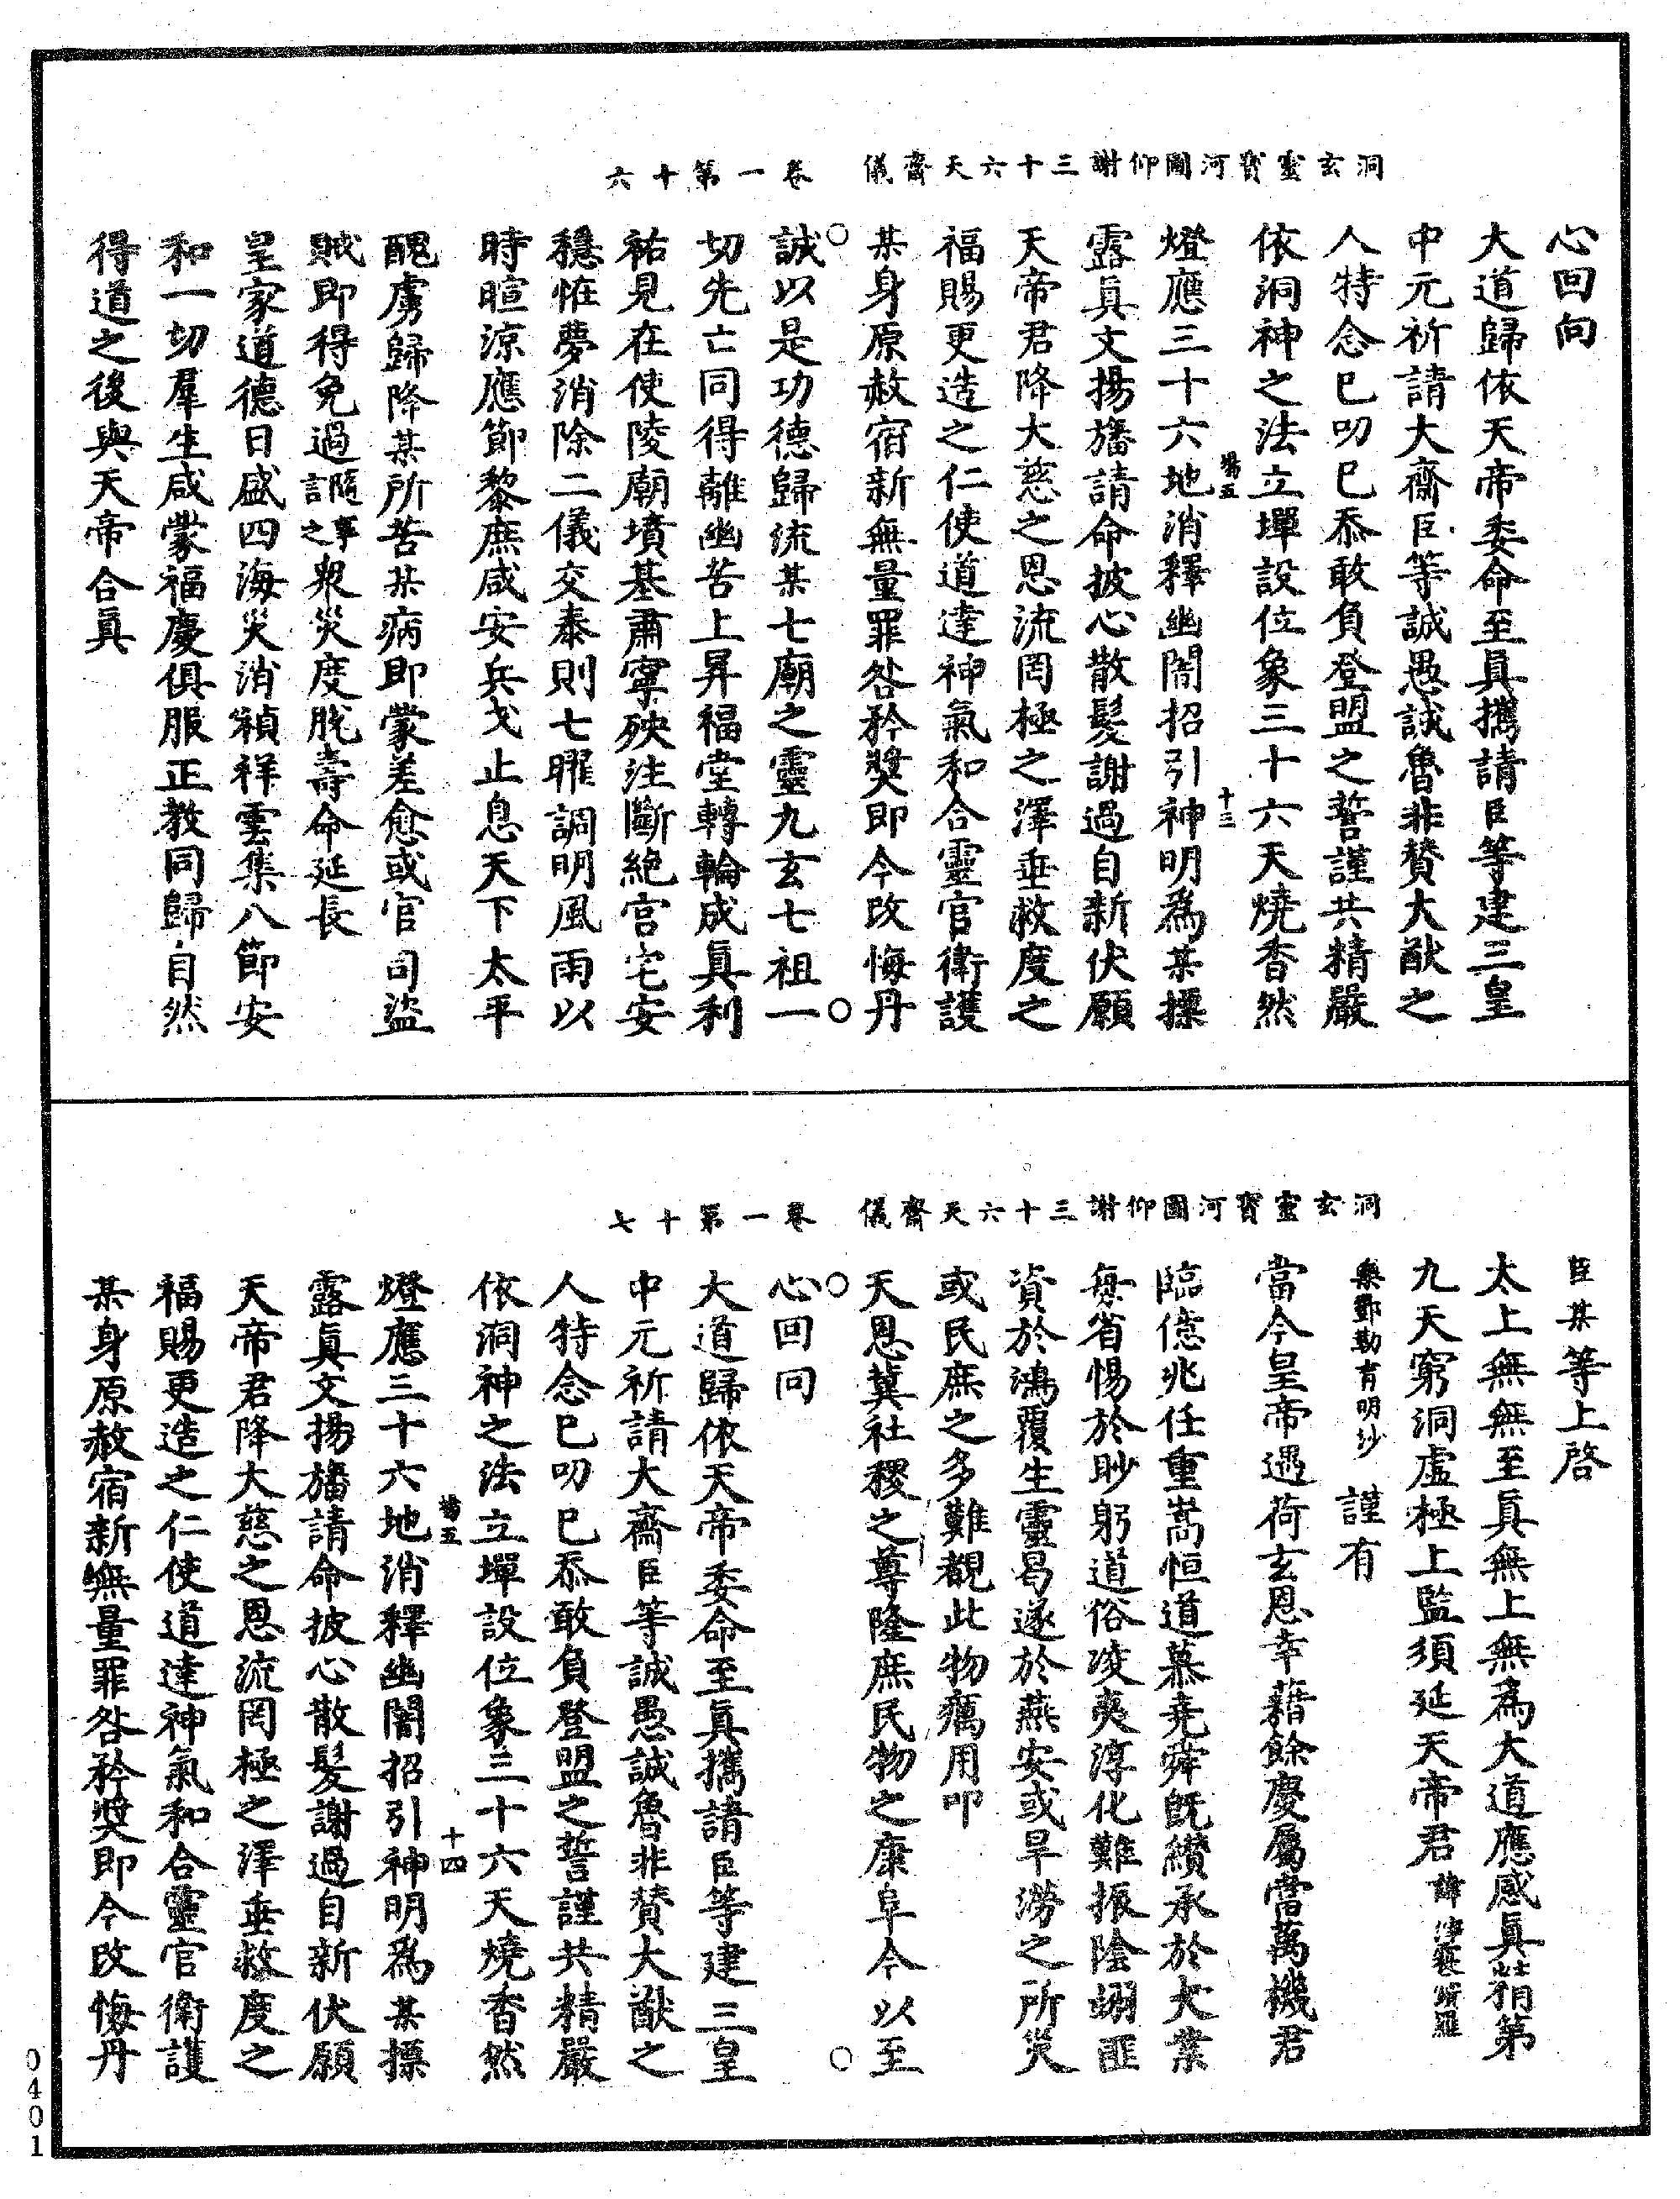 洞玄靈寶河圖仰謝三十六天齋儀　卷一第十六
心回向
大道歸依天帝委命至真攜請臣等建三皇
中元祈請大齋臣等誠愚誠魯非賛大猷之
人特念已叨已忝敢負登盟之誓謹共精嚴
依洞神之法立墠設位象三十六天燒香然
場五　十三
燈應三十六地消釋幽闇招引神明為某摽
露真文揚旛請命披心散髮謝過自新伏願
天帝君降大慈之恩流罔極之澤垂救度之
福賜更造之仁使道達神氣和合靈官衛護
某身原赦宿新無量罪咎矜奬即今改悔丹
誠以是功德歸流某七廟之靈九玄七祖一
切先亡同得離幽苦上昇福堂轉輪成真利
祐見在使陵廟墳基肅寧殃注斷絕宫宅安
穩恠夢消除二儀交泰則七曜調明風雨以
時暄涼應節黎庶咸安兵戈止息天下太平
醜虜歸降某所苦某病即蒙差愈或官司盜
賊即得免過隨事言之衆災度脫壽命延長
皇家道德日盛四海災消禎祥雲集八節安
和一切羣生咸蒙福慶俱服正教同歸自然
得道之後與天帝合真
洞玄靈寶河圖仰謝三十六天齋儀　卷一第十七
臣某等上啓
太上無無至真無上無為大道應感真第
九天窮洞虛極上監須延天帝君諱
謹有
當今皇帝遇荷玄恩幸藉餘慶屬當萬機君
臨億兆任重嵩恒道慕堯舜旣纘承於大業
每省惕於眇躬道俗凌夷淳化難振陰翊匪
資於鴻覆生靈曷遂於燕安或旱澇之所災
或民庶之多難覩此物癘用叩
天恩冀社稷之尊隆庶民物之康阜今以至
心回向
大道歸依天帝委命至真攜請臣等建三皇
中元祈請大齋臣等誠愚誠魯非賛大猷之
人特念已叨已忝敢負登盟之誓謹共精嚴
依洞神之法立墠設位象三十六天燒香然
場五　十四
燈應三十六地消釋幽闇招引神明為某摽
露真文揚旛請命披心散髮謝過自新伏願
天帝君降大慈之恩流罔極之澤垂救度之
福賜更造之仁使道達神氣和合靈官衛護
某身原赦宿新無量罪咎矜奬即今改悔丹
0401